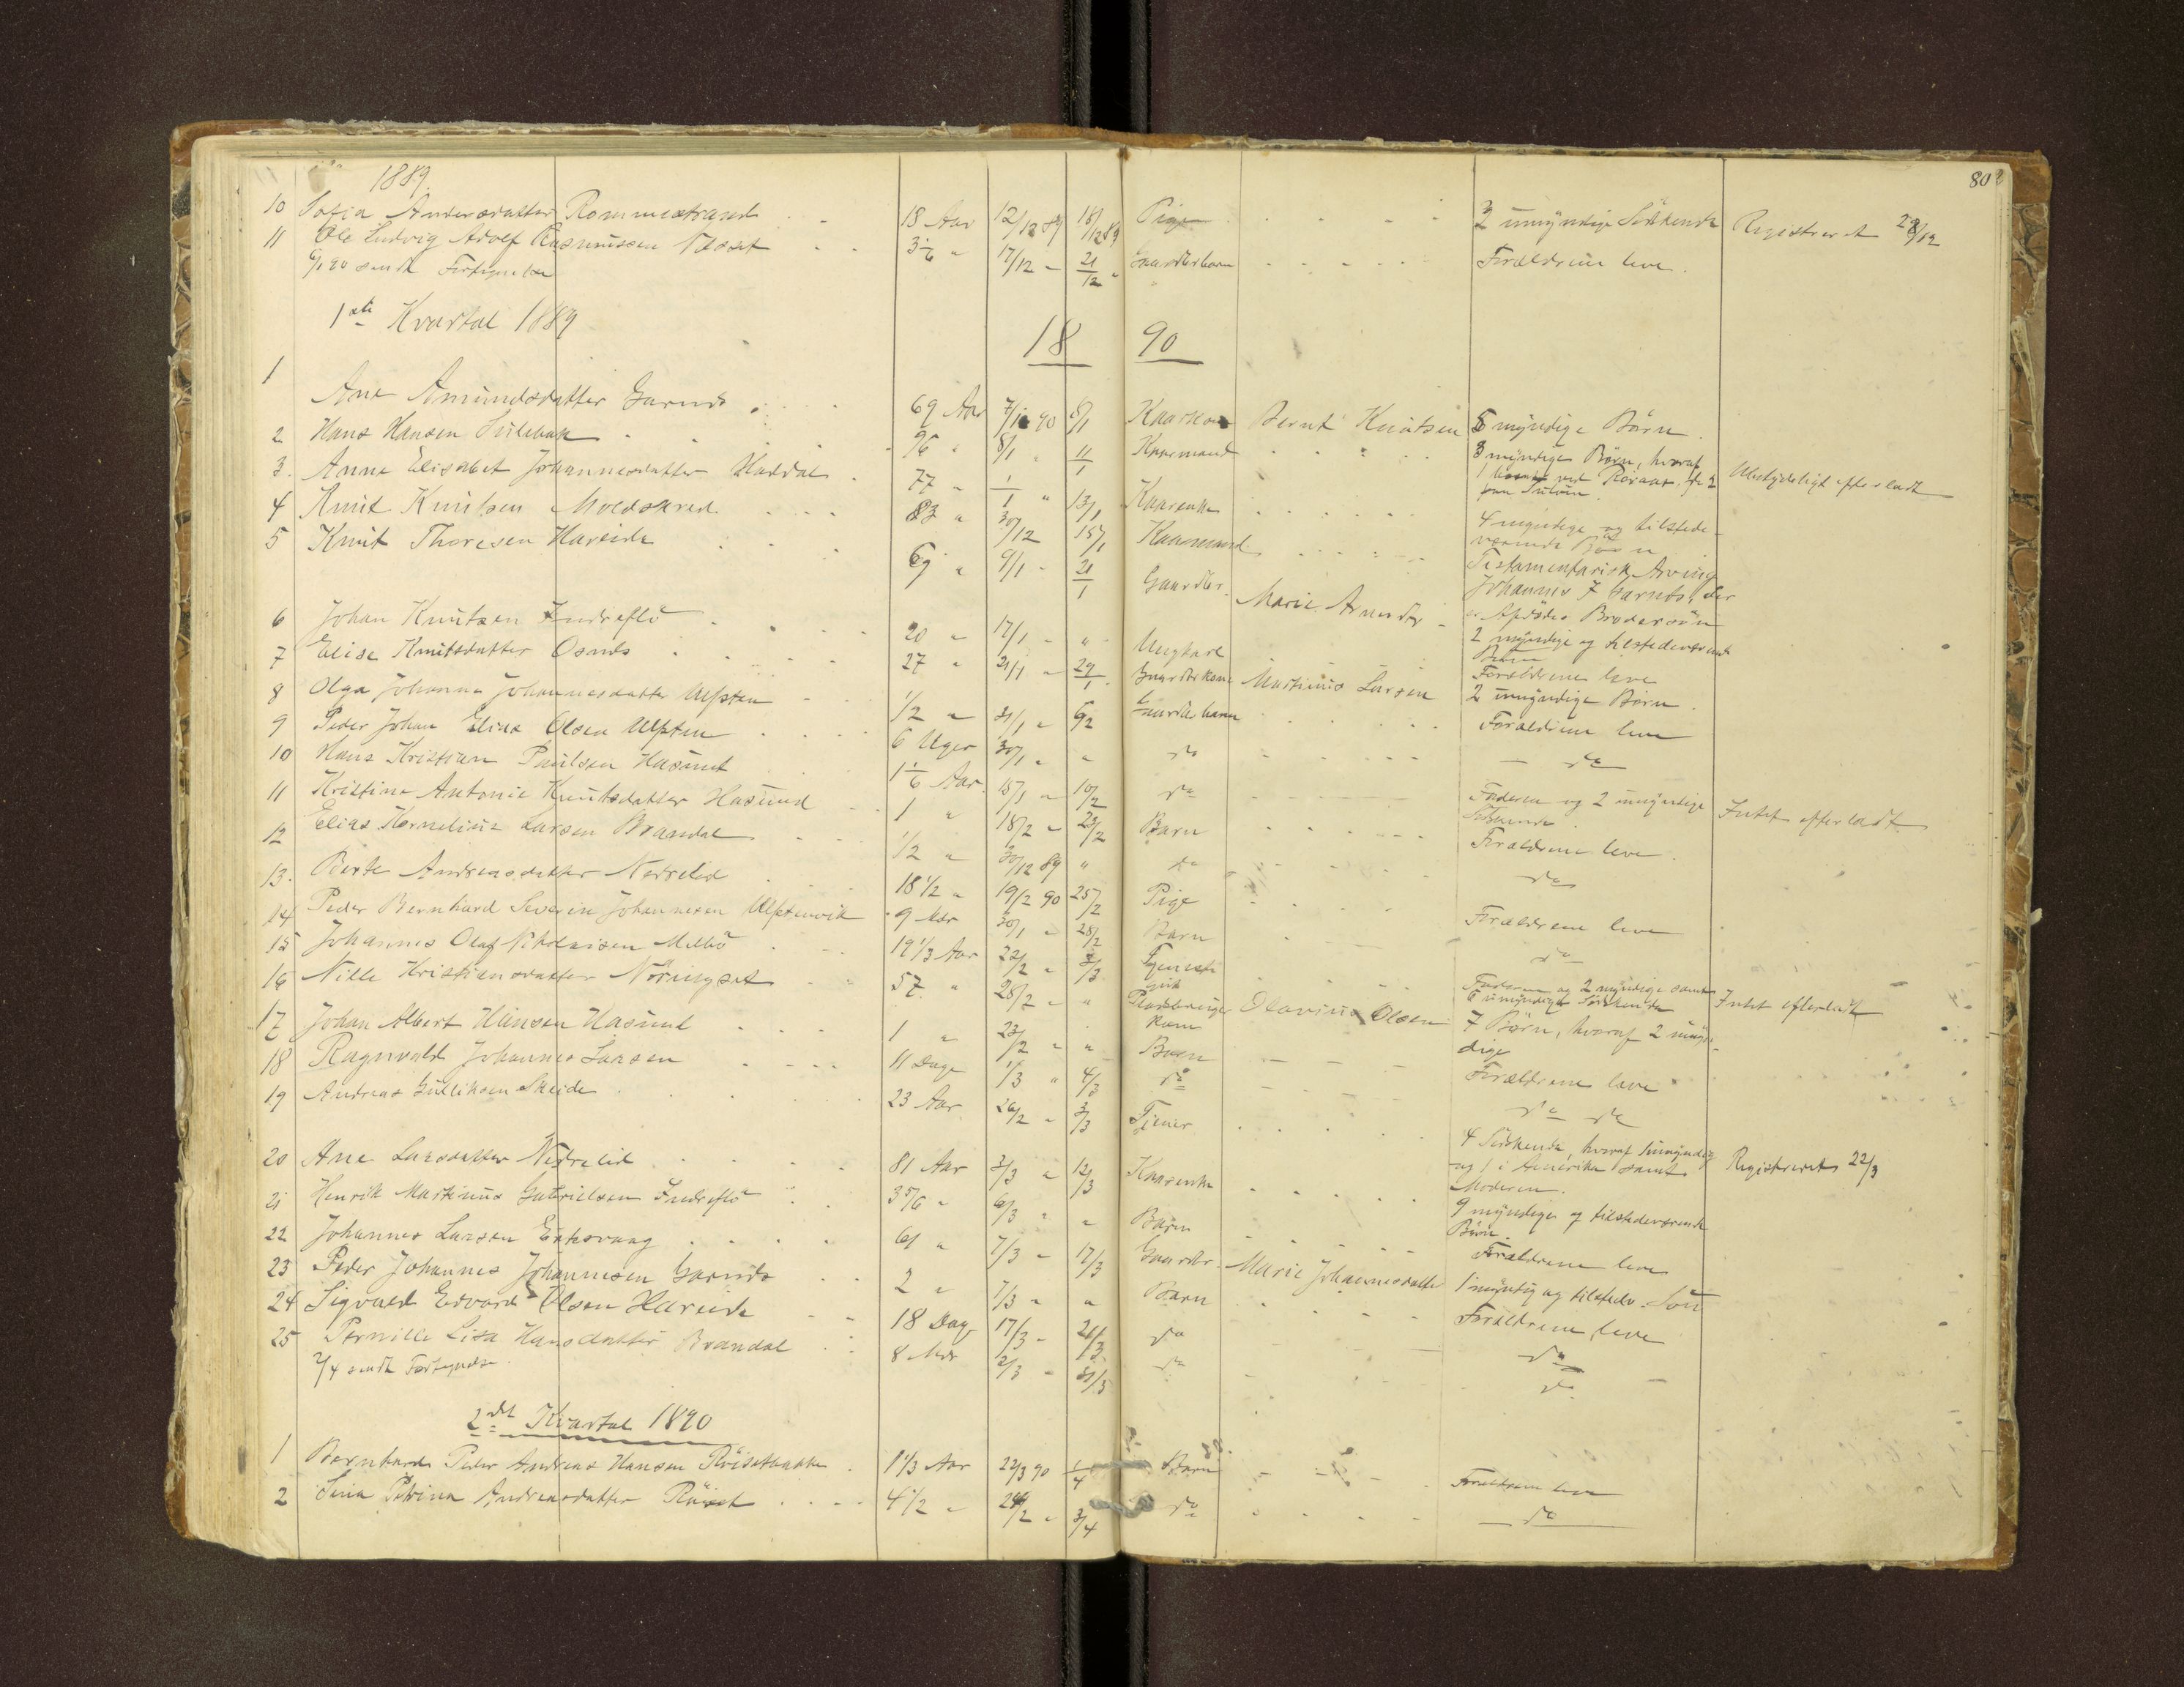 80
1889.
10 Sofia Andersdatter Rommestrand 18 Aar 12/12 89 18/12 89 Pige 3 umyndige Södskende Registreret 28/12
11 Ole Ludvig Adolf Rasmussen 3 1/6 " 17/12 - 21/12 - Gaardbrbarn Forældrene leve.
6/1 90 sendt Fortegnelse
1ste Kvartal 1889
18 90
1 Ane Amundsdatter Garnes 69 Aar 7/1 90 Bernt Knutsen 5 myndige Börn.
2 Hans Hansen 8/1 " 11/1 Kaarmand 3 myndige Börn, hvoraf
1 ved de 2
Ubetydeligt efterladt
3. Anne Elisabet Johannesdatter Haddal 77 " 1/1 " 13/1 Kaarenke
4 myndige og tilstede-
værende Börn
4 Knut Knutsen Moldskred 83 " 30/12 15/1 Kaarmand
Testamentarisk Arving
Johannes J Garnes, der
er Afdödes Brodersön
5 Knut Thoresen Hareide 69 " 9/1 - 21/1 Gaardbr. Marie
2 myndige og tilstedeværende
Börn
6 Johan Knutsen Indreflö 20 " 17/1 - " Ungkarl Forældrene leve
7 Elise Knutsdatter Osnes 27 " 21/1 - 29/1 Gaardbrkone Martinus Larsen 2 umyndige Börn.
8 Olga Johanna Johannesdatter Ulfsten 1/2 " 31/1 " 6/2 Gaardbrbarn Forældrene leve
9 Peder Johan Elias Olsen Ulfsten 6 Uger 30/1 " " do do
10 Hans Kristian Paulsen Hasund 1 1/6 Aar 10/2 do Faderen og 2 umyndige
Södskende
Intet efterladt
11 Kristine Antonie Knutsdatter Hasund 1 " 18/2 - 23/2 Barn Forældrene leve.
12 Elias Kornelius Larsen Brandal 1/2 " 30/12 89 " do do
13. Berte Andreasdatter Nedrelid 18 1/2 " 19/2 90 25/2 Pige Forældrene leve
14 Peder Bernhard Severin Johannesen Ulfstenvik 9 Mdr 30/1 - 28/2 Barn do
15 Johannes Olaf Nikolaisen 19 1/3 Aar 22/2 "
Faderen og 2 myndige samt
6 umyndige Södskende
Intet efterladt
16 Nille Kristiansdatter Nöringset 57 " 28/2 - " Pladsbruger
Kone
Olavinus Olsen 7 Börn, hvoraf 2 umyn-
dige
17 Johan Albert Hansen Hasund 1 " 23/2 " " Barn Forældrene leve
18 Ragnvald Johannes Larsen 11 Dage 1/3 " 4/3 do do do
19 Andreas Gulliksen Skeide 23 Aar 26/2 - 3/3 Tjener
4 Södskende, hvoraf
og 1 i Amerika samt
Moderen.
Registreret 22/3
20 Ane Larsdatter Nedrelid 81 Aar 3/3 " 12/3 Kaarenke
9 myndige og tilstedeværende
Börn.
21 Henrik Martinus Gabrielsen Indreflö 3 5/6 " 6/3 " " Barn Forældrene leve
22 Johannes Larsen Eiksvaag 61 " 7/3 - 17/3 Gaardbr. Marie Johannesdatter 1 myndig og tilstedv. Sön
23 Peder Johannes Johannesen Garnes 2 " 7/3 - " Barn Forældrene leve
24 Sigvald Edvard Olsen Hareide 18 Dag 17/3 - do do
25 Pernille Lisa Hansdatter Brandal 8 Mdr 2/3 - do do
2/4 sendt Fortegnelse.
2det Kvartal 1890
1 Bernhard Peder Andreas Hansen 1 1/3 Aar 22/3 90 1/4 Barn Forældrene leve
2 Petrine Andreasdatter Röiset 4 1/2 " 3/4 do do